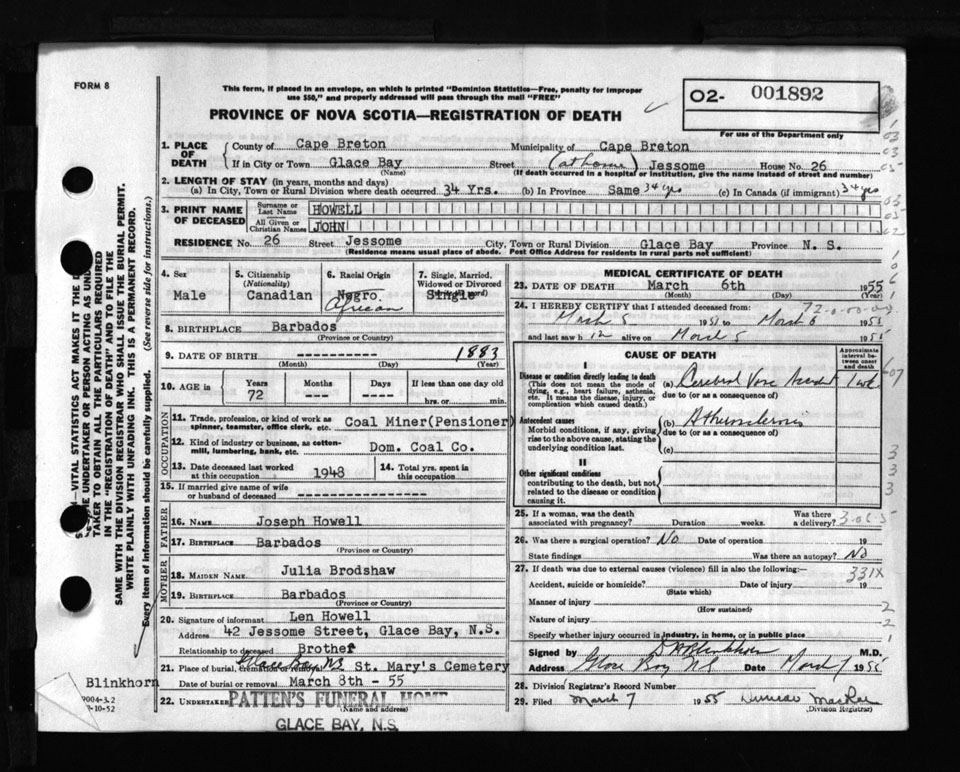 FORM 8
This form, if placed in an envelope, on which is printed "Dominion Statistics—Free, penalty for improper
use $50," and properly addressed will pass through the mail "FREE"
PROVINCE OF NOVA SCOTIA—REGISTRATION OF DEATH
O2- 001892
For use of the Department only
1. PLACE OF DEATH
County of Cape Breton Municipality of Cape Breton
If in City or Town Glace Bay Street (at home) Jessome House No. 26
(Name) (If death occurred in a hospital or institution, give the name instead of street and number)
2. LENGTH OF STAY (in years, months and days)
(a) In City, Town or Rural Division where death occurred 34 Yrs. (b) In Province Same 34 yrs (c) In Canada (if immigrant) 34 yrs
3. PRINT NAME OF DECEASED
Surname or Last Name HOWELL
All Given or Christian Names JOHN
RESIDENCE No. 26 Street Jessome City, Town or Rural Division Glace Bay Province N. S.
(Residence means usual place of abode. Post Office Address for residents in rural parts not sufficient)
4. Sex
Male
5. Citizenship
(Nationality)
Canadian
6. Racial Origin
Negro.
African
7. Single, Married,
Widowed or Divorced
Single
8. BIRTHPLACE Barbados
(Province or Country)
9. DATE OF BIRTH ----------- 1883
(Month) (Day) (Year)
10. AGE in
Years Months Days If less than one day old
72 --- --- hrs. or min.
OCCUPATION
11. Trade, profession, or kind of work as
spinner, teamster, office clerk, etc. Coal Miner(Pensioner)
12. Kind of industry or business, as cotton-
mill, lumbering, bank, etc. Dom. Coal Co.
13. Date deceased last worked
at this occupation 1948
14. Total yrs. spent in
this occupation
15. If married give name of wife
or husband of deceased ----------------
FATHER
16. NAME Joseph Howell
17. BIRTHPLACE Barbados
(Province or Country)
MOTHER
18. MAIDEN NAME Julia Brodshaw
19. BIRTHPLACE Barbados
(Province or Country)
20. Signature of informant Len Howell
Address 42 Jessome Street, Glace Bay, N.S.
Relationship to deceased Brother
21. Place of burial, cremation or removal Glace Bay NS St. Mary's Cemetery
Date of burial or removal March 8th - 55
22. UNDERTAKER PATTEN'S FUNERAL HOME
(Name and address)
GLACE BAY, N.S.
MEDICAL CERTIFICATE OF DEATH
23. DATE OF DEATH March 6th 1955
(Month) (Day) (Year)
24. I HEREBY CERTIFY that I attended deceased from:
March 5 195 to March 6 195
and last saw h alive on March 5 195
CAUSE OF DEATH
Approximate
interval be-
tween onset
and death
I
Disease or condition directly leading to death
(This does not mean the mode of
dying, e.g., heart failure, asthenia,
etc. It means the disease, injury, or
complication which caused death.)
(a) Cerebral Vasc Accident
due to (or as a consequence of)
Antecedent causes
Morbid conditions, if any, giving
rise to the above cause, stating the
underlying condition last.
(b) Atherosclerosis
due to (or as a consequence of)
(c)
II
Other significant conditions
contributing to the death, but not
related to the disease or condition
causing it.
25. If a woman, was the death
associated with pregnancy? Duration weeks. Was there
a delivery?
26. Was there a surgical operation? No Date of operation 19
State findings Was there an autopsy? No
27. If death was due to external causes (violence) fill in also the following:—
331X
Accident, suicide or homicide? Date of injury 19
(State which)
Manner of injury
(How sustained)
Nature of injury
Specify whether injury occurred in industry, in home, or in public place
Signed by M.D.
Address Glace Bay NS Date March 7 1955
28. Division Registrar's Record Number
29. Filed March 7 1955 Duncan MacRae
(Division Registrar)
UNDERTAKER OR PERSON ACTING AS UND
TAKER TO OBTAIN ALL THE PARTICULARS REQUIRED
IN THE "REGISTRATION OF DEATH" AND TO FILE THE
SAME WITH THE DIVISION REGISTRAR WHO SHALL ISSUE THE BURIAL PERMIT.
WRITE PLAINLY WITH UNFADING INK. THIS IS A PERMANENT RECORD.
Every item of information should be carefully supplied. (See reverse side for instructions.)
Blinkhorn
9004-3.2
-10-52